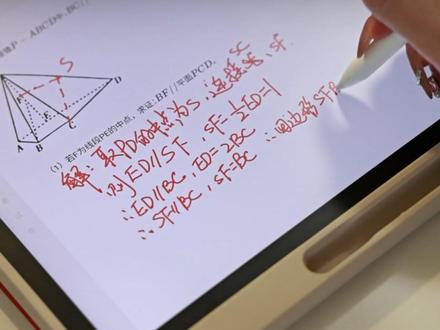 锥P-ABCD中,BC//
S
P
F
E
D
A
B
C
(1) 若F为线段PE的中点,求证:BF//平面PCD.
解:取PD的中点为S,连接SC、SF.
则ED//SF,SF=½ED=1
∵ED//BC,ED=2BC
∴SF//BC,SF=BC ∴四边形SFB